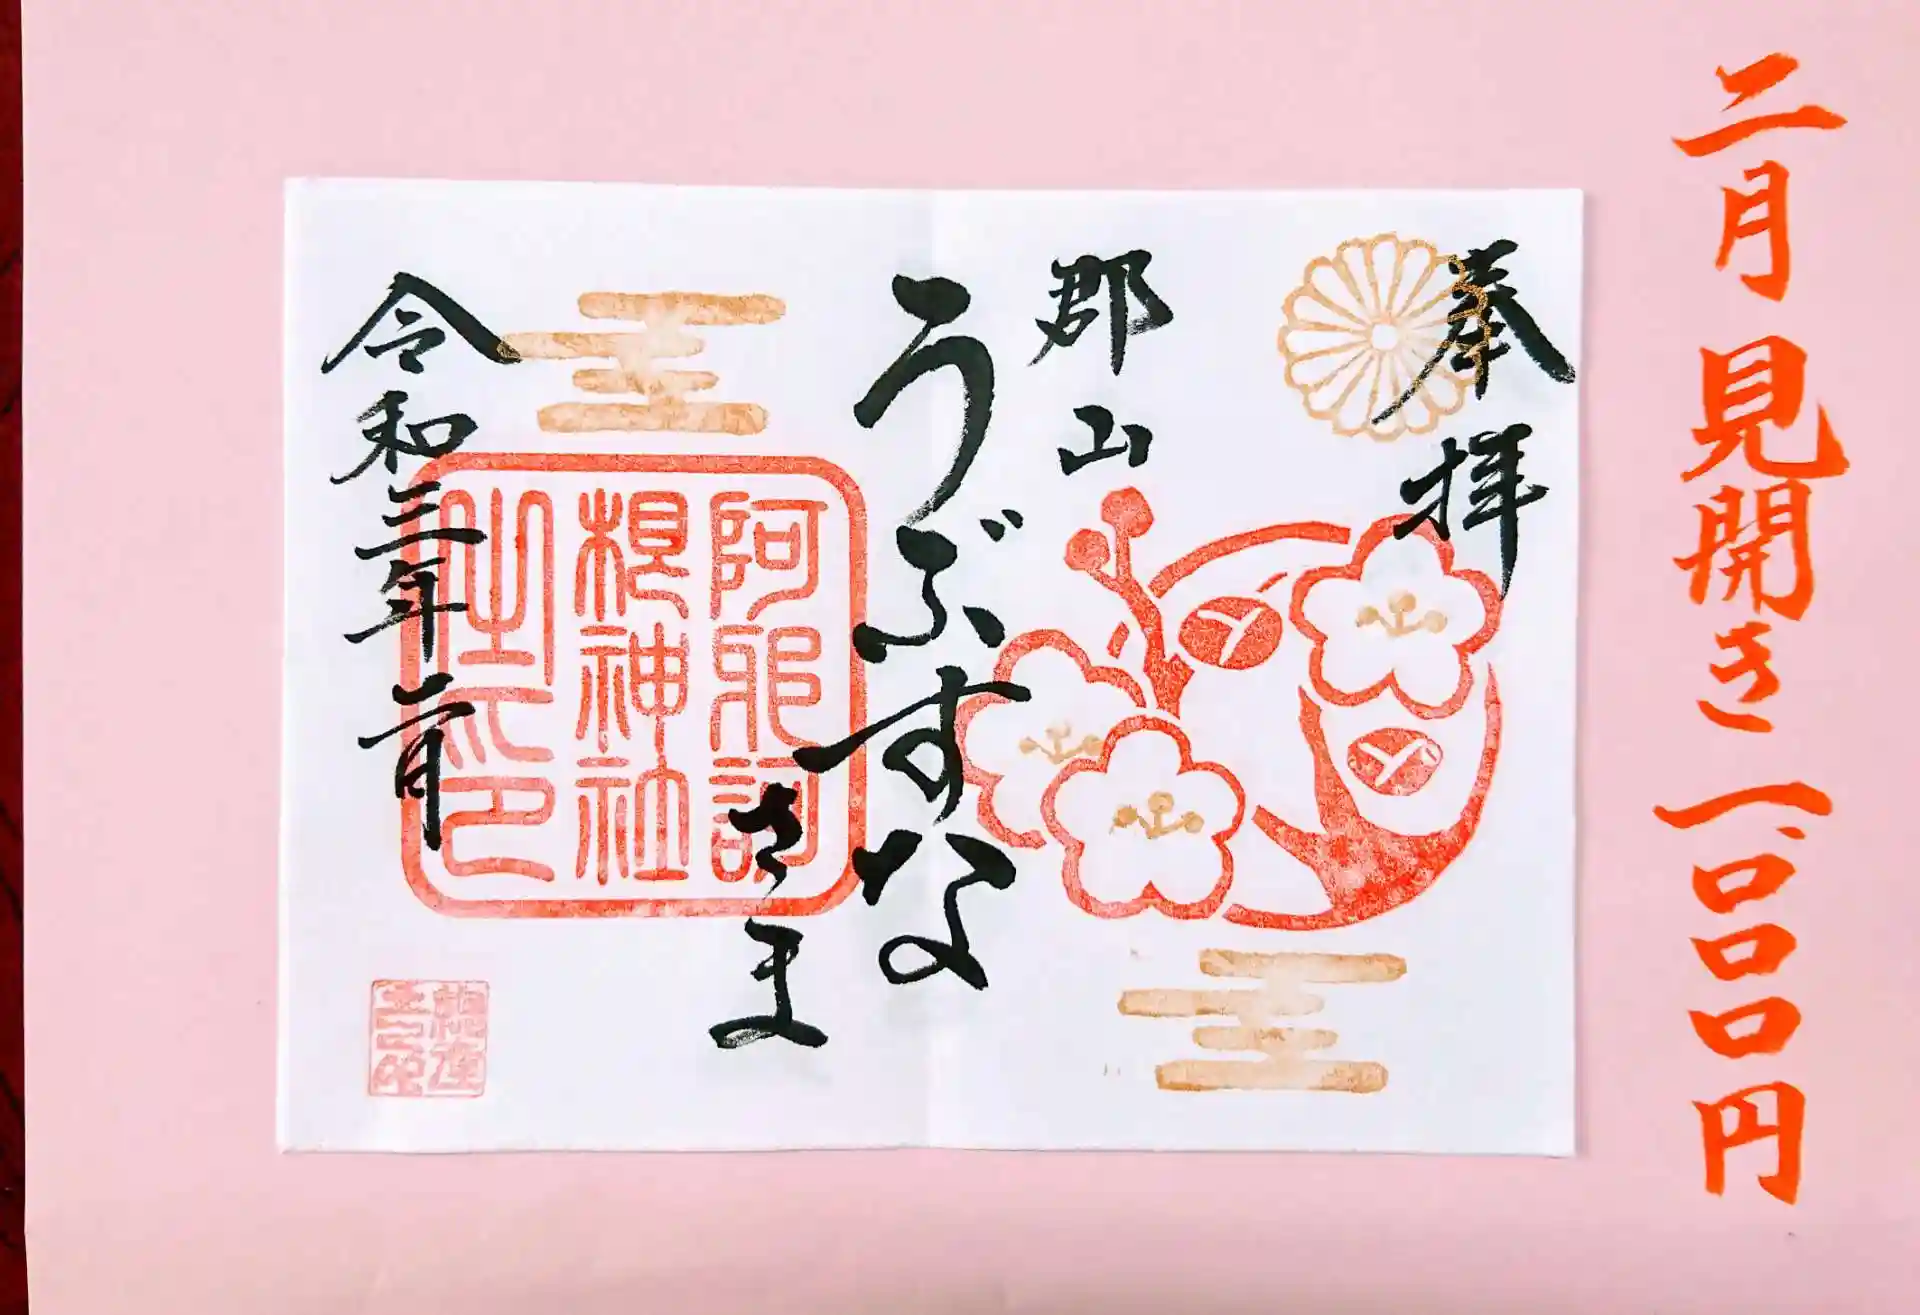 二月 見開き 一、〇〇〇円
奉拝
郡山
うぶすな
さま
令和三年二月
阿邪訶
根神社
之印